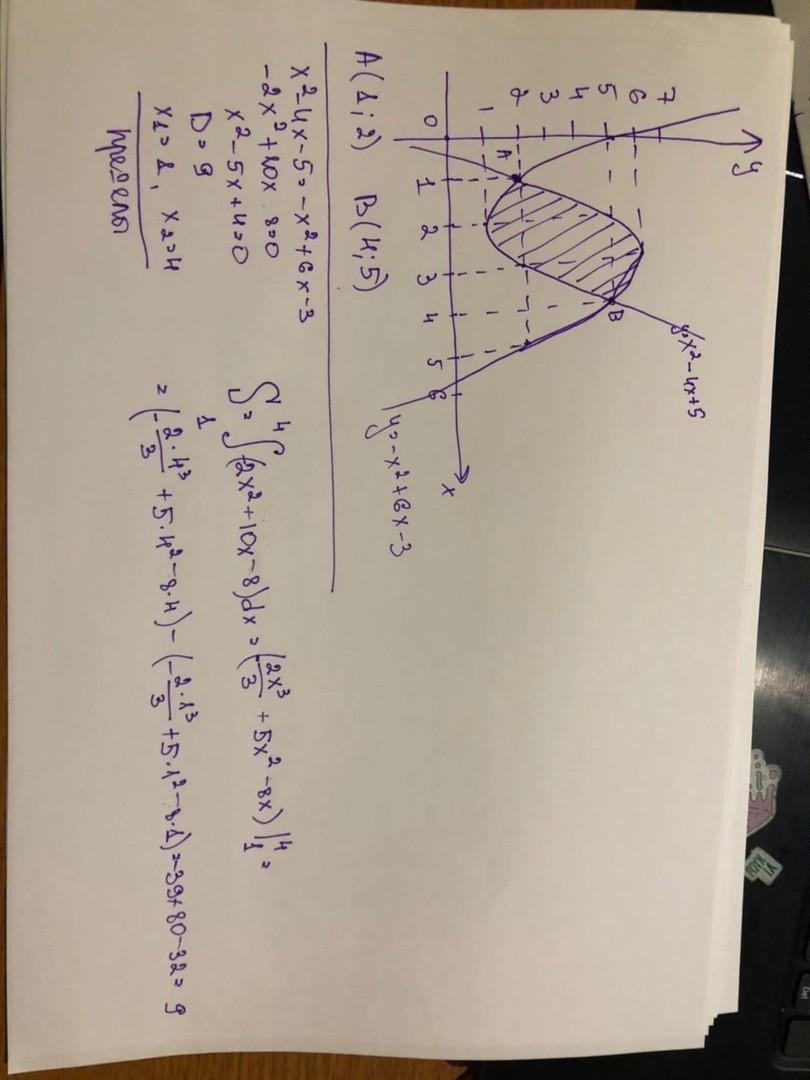 y
7
6
5
4
3
2
1
0
1 2 3 4 5 6
x
A
B
y=x²-4x+5
y=-x²+6x-3
A(1;2) B(4;5)
x²-4x-5=-x²+6x-3
-2x²+10x 8=0
x²-5x+4=0
D=9
x₁=1, x₂=4
пределы
S=∫₁⁴(-2x²+10x-8)dx=(-2x³/3+5x²-8x)|₁⁴=
=(-2·4³/3+5·4²-8·4)-(-2·1³/3+5·1²-8·1)=-39+80-32=9